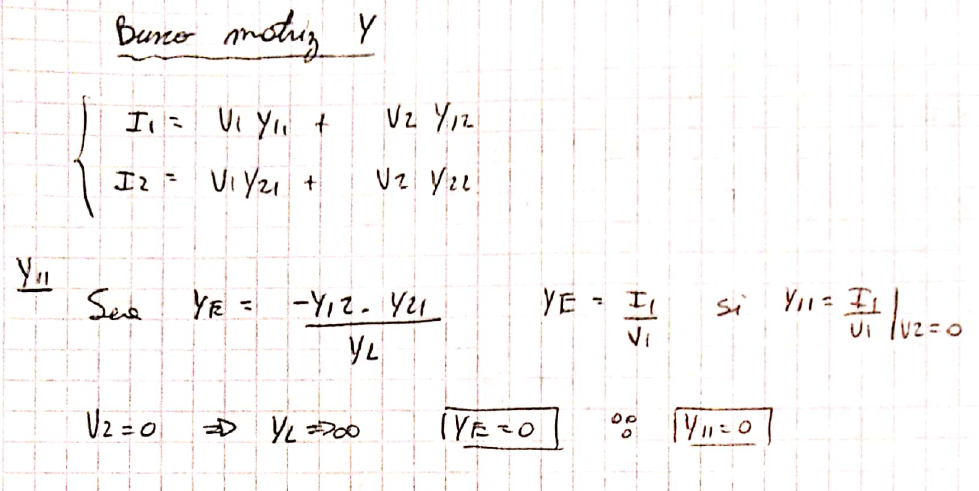 Busco matriz Y
I1 = V1 Y11 + V2 Y12
I2 = V1 Y21 + V2 Y22
Y11
Sea YE = -Y12 . Y21 / YL YE = I1 / V1 si Y11 = I1 / V1 | V2=0
V2=0 ⇒ YL ⇒ ∞ YE=0 ∴ Y11=0